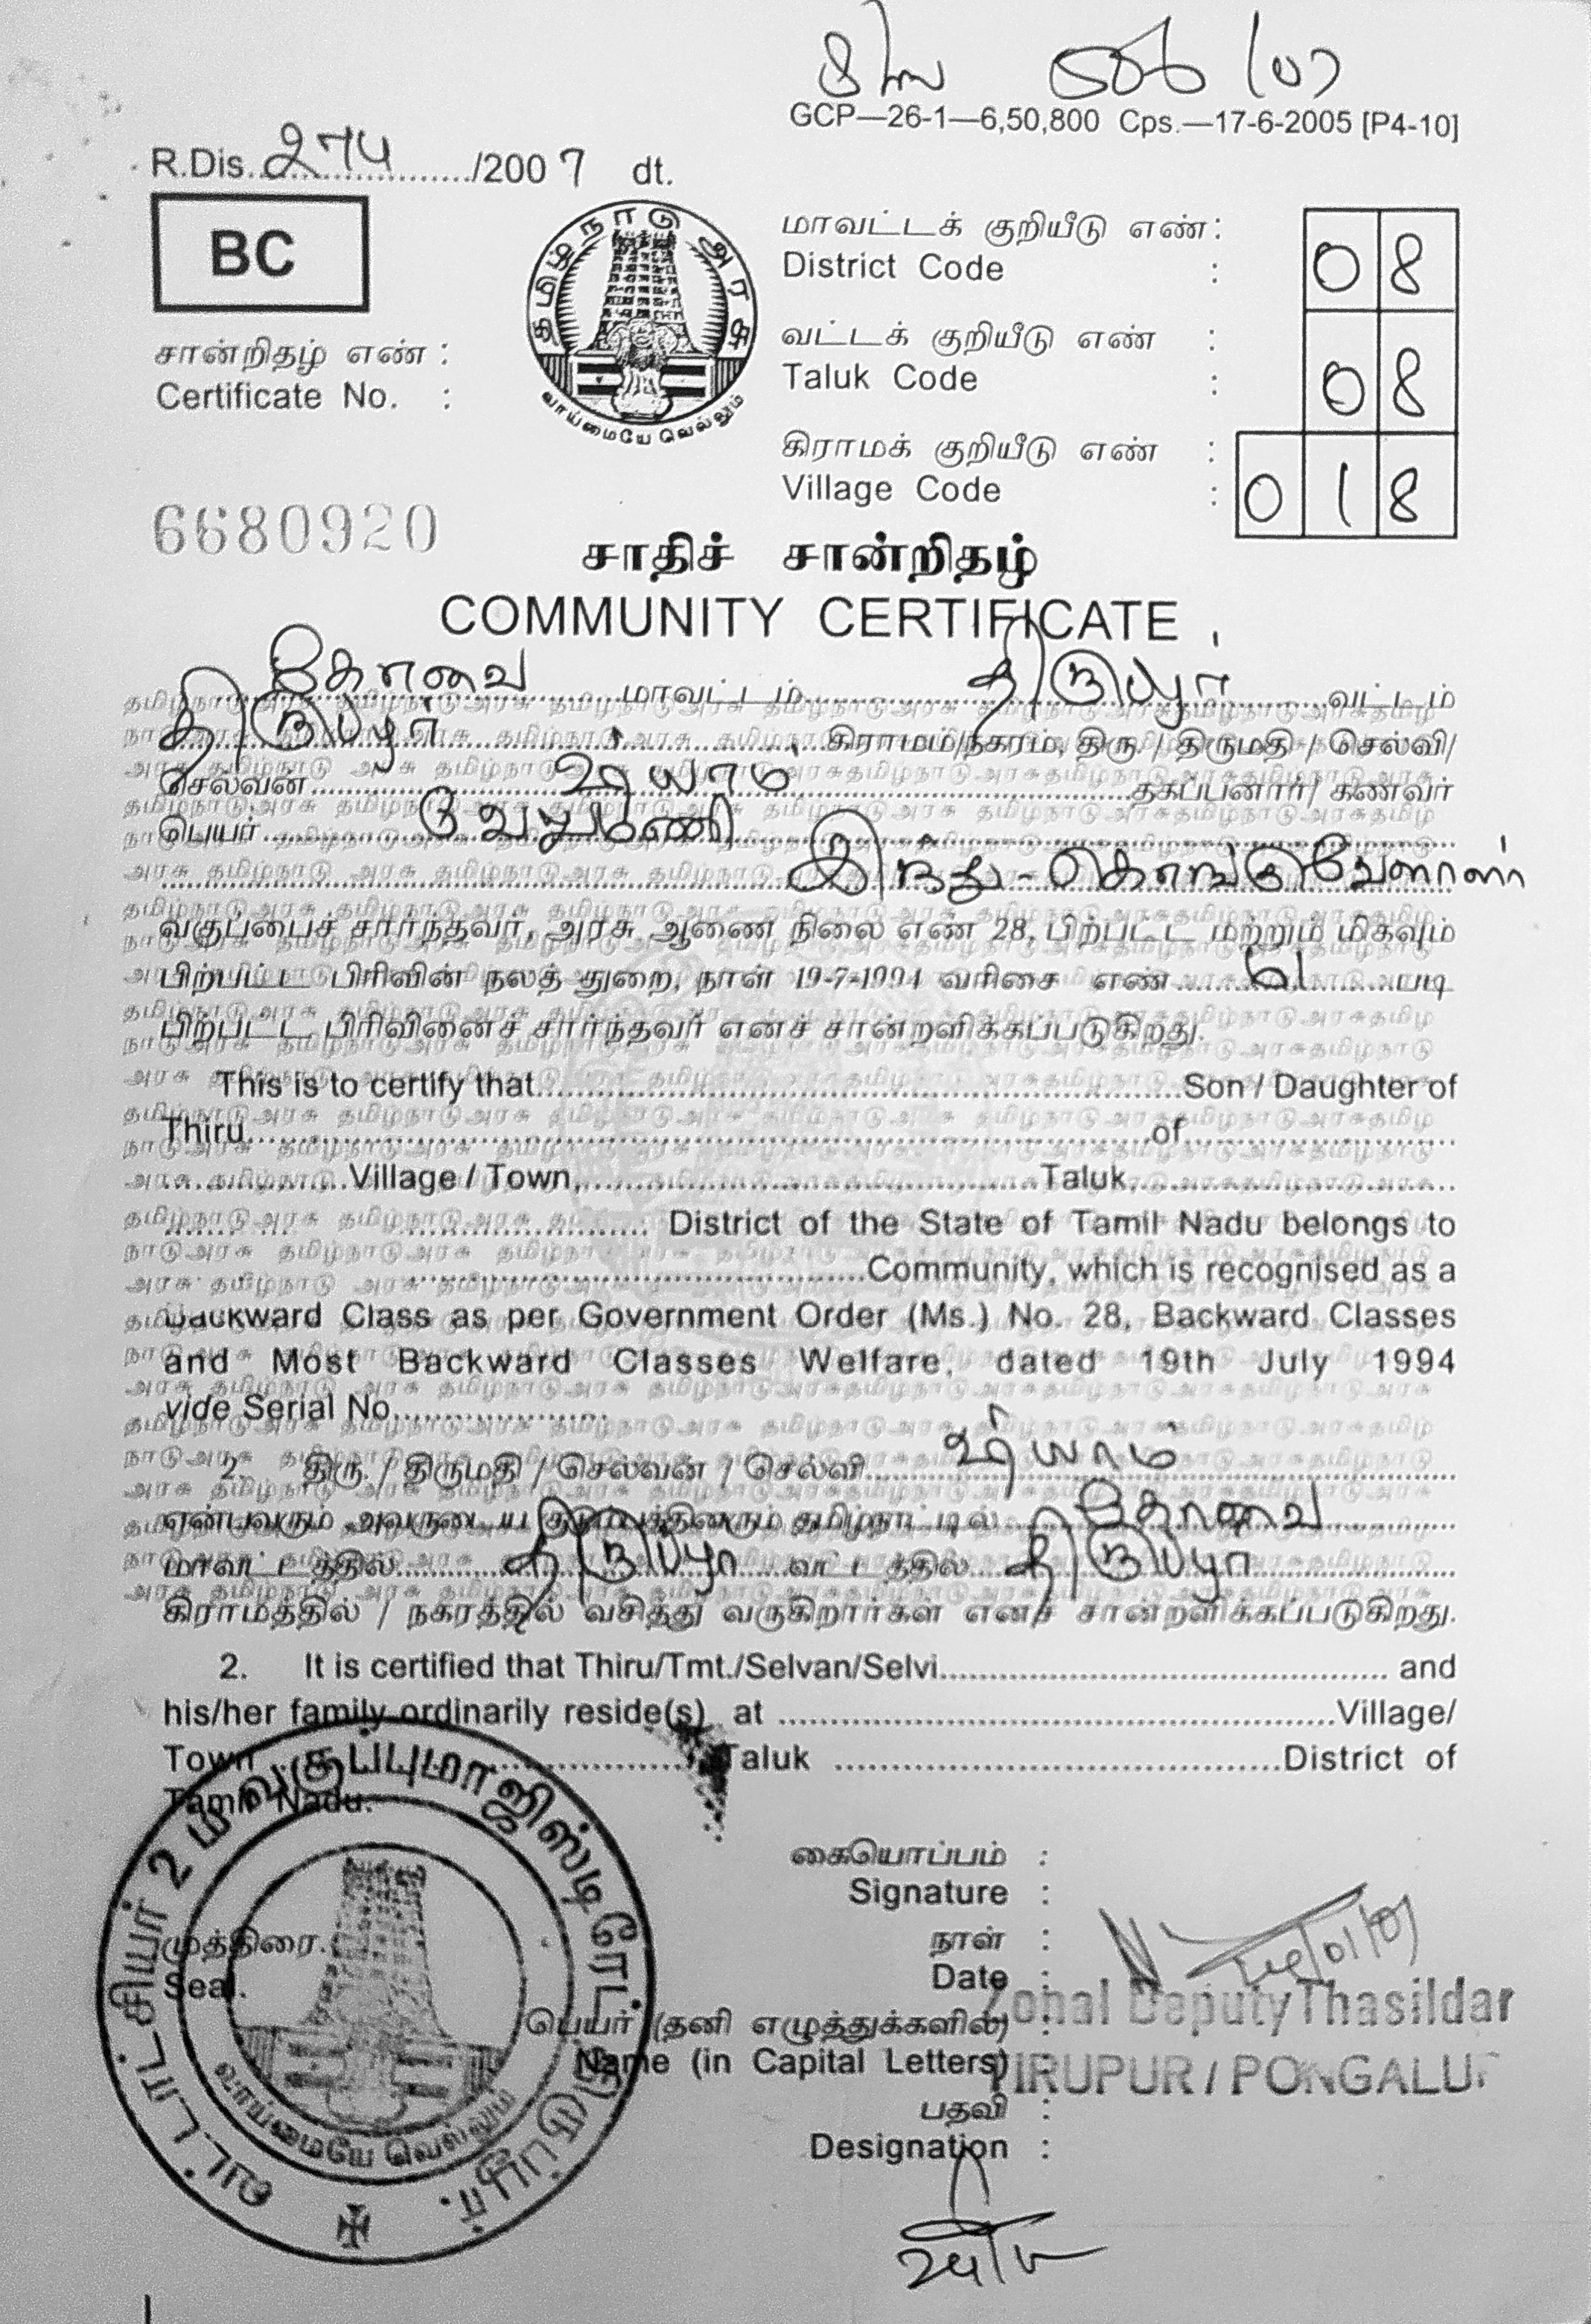 GCP—26-1—6,50,800 Cps.—17-6-2005 [P4-10]
R.Dis. 274 /2007 dt.
BC
தமிழ்நாடு அரசு
வாய்மையே வெல்லும்
மாவட்டக் குறியீடு எண் :
District Code : 08
வட்டக் குறியீடு எண் :
Taluk Code : 08
கிராமக் குறியீடு எண் :
Village Code : 018
சான்றிதழ் எண் :
Certificate No. :
6680920
சாதிச் சான்றிதழ்
COMMUNITY CERTIFICATE
கோவை மாவட்டம் திருப்பூர் வட்டம்
திருப்பூர் கிராமம்/நகரம், திரு. / திருமதி / செல்வி/
செல்வன் ஷியாம் தகப்பனார்/ கணவர்
பெயர் வேலுமணி
இந்து - கொங்கு வேளாளர்
வகுப்பைச் சார்ந்தவர், அரசு ஆணை நிலை எண் 28, பிற்பட்ட மற்றும் மிகவும்
பிற்பட்ட பிரிவின் நலத் துறை, நாள் 19-7-1994 வரிசை எண் 61 படி
பிற்பட்ட பிரிவினைச் சார்ந்தவர் எனச் சான்றளிக்கப்படுகிறது.
This is to certify that Son / Daughter of
Thiru of
Village / Town, Taluk,
District of the State of Tamil Nadu belongs to
Community, which is recognised as a
Backward Class as per Government Order (Ms.) No. 28, Backward Classes
and Most Backward Classes Welfare, dated 19th July 1994
vide Serial No.
2. திரு. / திருமதி / செல்வன் / செல்வி ஷியாம்
என்பவரும் அவருடைய குடும்பத்தினரும் தமிழ்நாட்டில் கோவை
மாவட்டத்தில் திருப்பூர் வட்டத்தில் திருப்பூர்
கிராமத்தில் / நகரத்தில் வசித்து வருகிறார்கள் எனச் சான்றளிக்கப்படுகிறது.
2. It is certified that Thiru/Tmt./Selvan/Selvi and
his/her family ordinarily reside(s) at Village/
Town Taluk District of
Tamil Nadu.
கையொப்பம் :
Signature :
நாள் :
Date :
பெயர் (தனி எழுத்துக்களில்) :
Name (in Capital Letters) :
பதவி :
Designation :
Zonal Deputy Thasildar
TIRUPUR / PONGALUR
முத்திரை.
Seal.
வட்டாட்சியர் 2 ம் வகுப்பு மாஜிஸ்டிரேட் திருப்பூர்.
வாய்மையே வெல்லும்